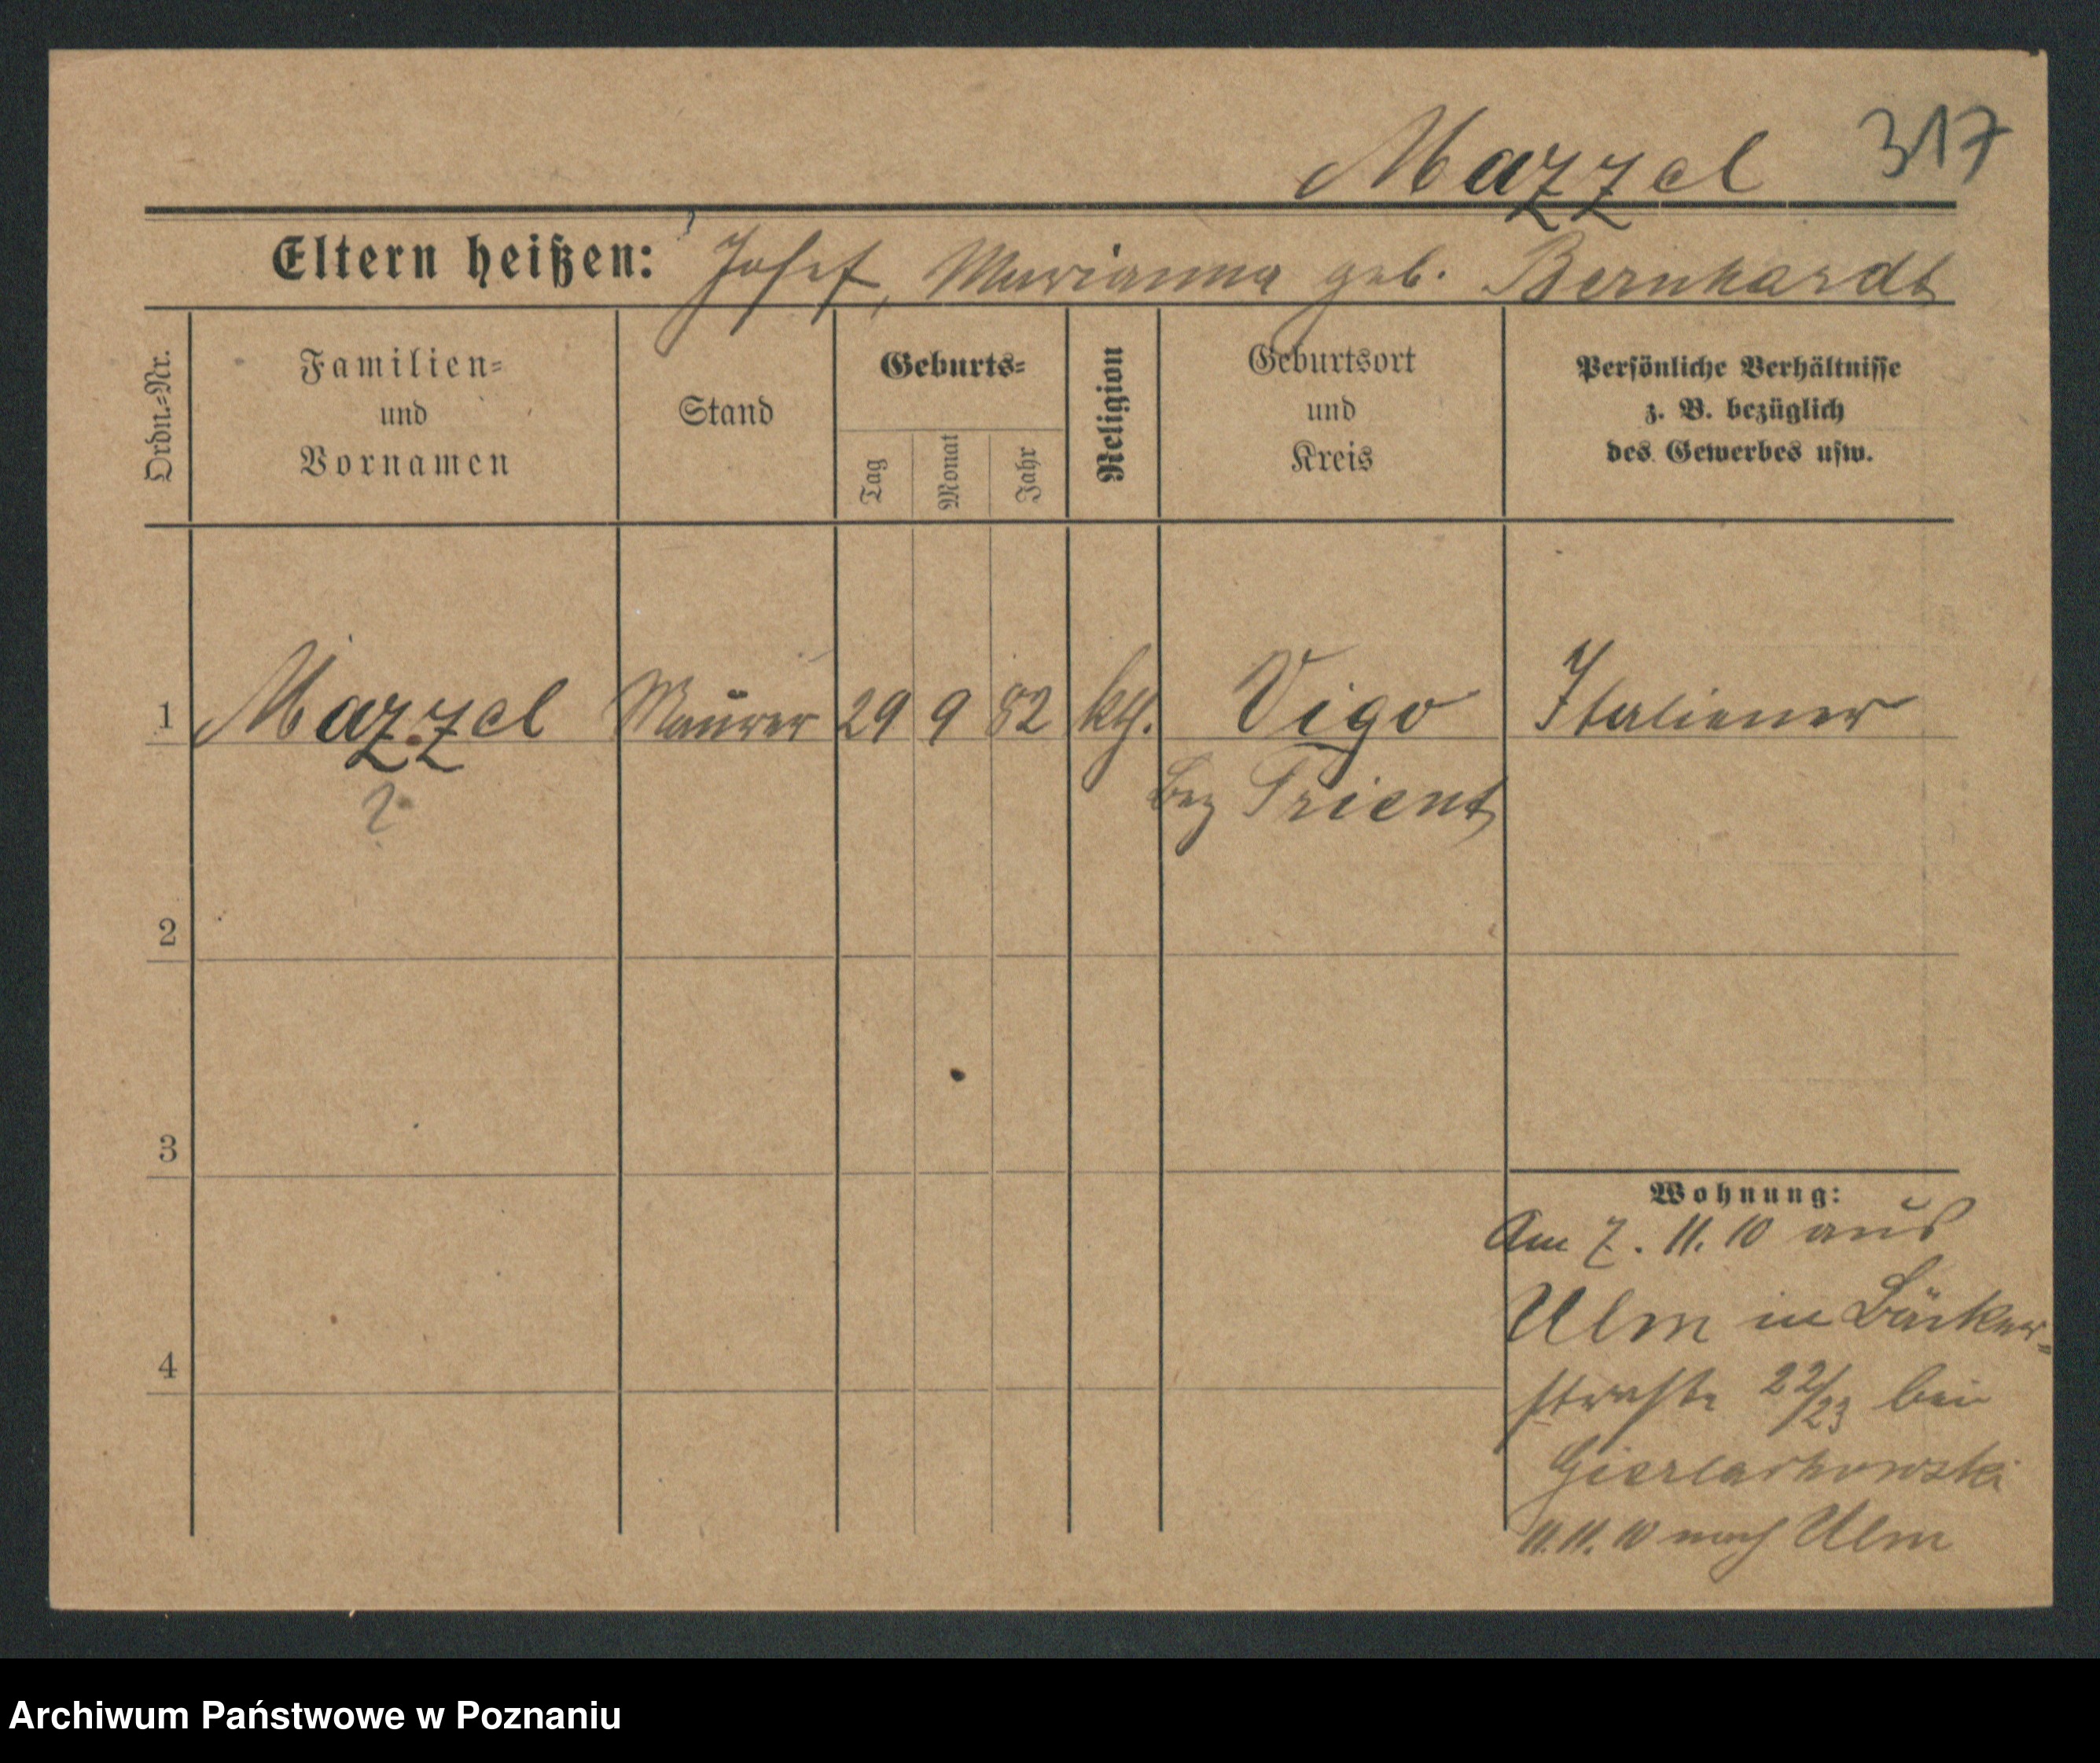 Mazzel 317
Eltern heißen: Josef, Marianna geb. Bernhardt
Ordn.=Nr.
Familien=
und
Vornamen
Stand
Geburts=
Tag
Monat
Jahr
Religion
Geburtsort
und
Kreis
Persönliche Verhältnisse
z. B. bezüglich
des Gewerbes usw.
1 Mazzel Maurer 29 9 82 kth. Vigo Italiener
bez Trient
2
3
4
Wohnung:
Am 7. 11. 10 aus
Ulm in Bäcker=
straße 22/23 bei
11.11. 10 nach Ulm
Archiwum Państwowe w Poznaniu